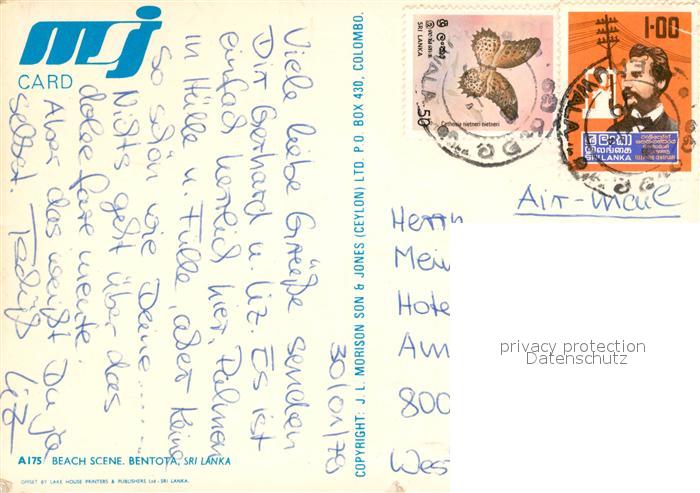 msj
CARD
Viele liebe Grüße senden
Dir Gerhard u. Liz. Es ist
einfach herrlich hier, Palmen
in Hülle u. Fülle, aber keine
so schön wie Deine......
Nichts geht über das
dolce fare niente.
Aber das weißt Du ja
selbst. Tschüß Liz
30/01/78
A175 BEACH SCENE. BENTOTA, SRI LANKA
OFFSET BY LAKE HOUSE PRINTERS & PUBLISHERS Ltd - SRI LANKA.
COPYRIGHT: J. L. MORISON SON & JONES (CEYLON) LTD. P. O. BOX 430, COLOMBO.
ශ්‍රී ලංකා
SRI LANKA
.50
Cethosia nietneri nietneri
1·00
SRI LANKA
Air-Mail
Herrn
Mein
Hote
Am
800
Wes
privacy protection
Datenschutz